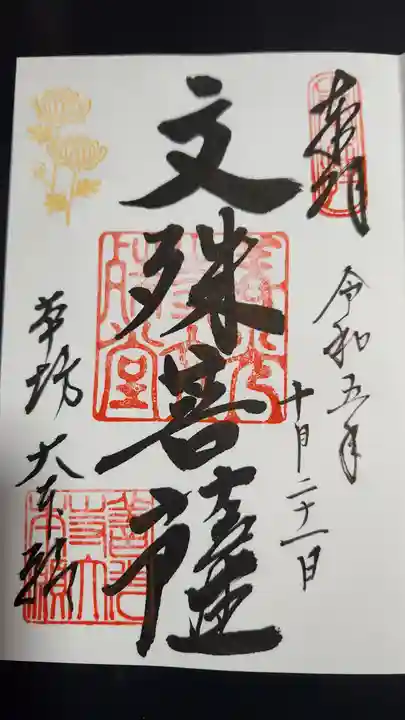 奉拝
令和五年
十月二十一日
文殊菩薩
本坊 大本願